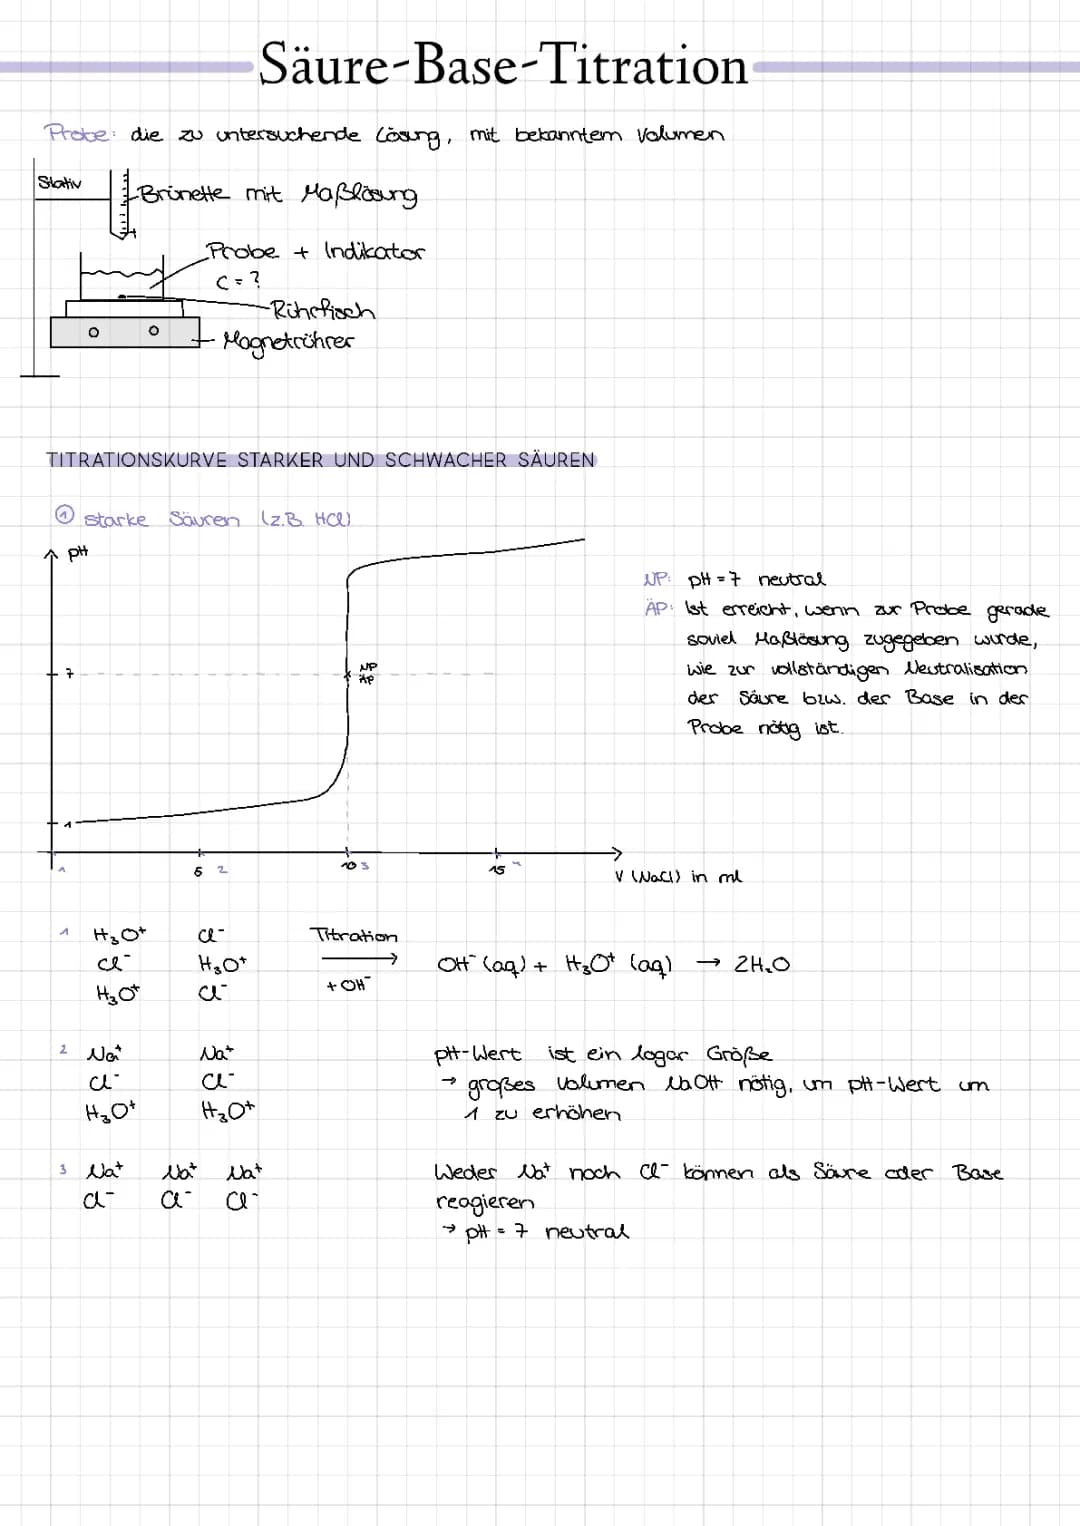 Säure-Base-Titration
Probe: die zu untersuchende Lösung, mit bekanntem Volumen
Stativ
Brünette mit Maßlösung
Probe + Indikator
C = ?
Rührfisch
Magnetrührer
TITRATIONSKURVE STARKER UND SCHWACHER SÄUREN
① starke Säuren (z.B. HCl)
pH
7
NP
ÄP
1
NP: pH = 7 neutral
ÄP: Ist erreicht, wenn zur Probe gerade
soviel Maßlösung zugegeben wurde,
wie zur vollständigen Neutralisation
der Säure bzw. der Base in der
Probe nötig ist.
1 5 2 10 3 15
V (NaCl) in ml
1 H₃O⁺ Cl⁻ Titration
Cl⁻ H₃O⁺ → OH⁻ (aq) + H₃O⁺ (aq) → 2H₂O
H₃O⁺ Cl⁻ + OH⁻
2 Na⁺ Na⁺ pH-Wert ist ein logar Größe
Cl⁻ Cl⁻ → großes Volumen NaOH nötig, um pH-Wert um
H₃O⁺ H₃O⁺ 1 zu erhöhen
3 Na⁺ Na⁺ Na⁺ Weder Na⁺ noch Cl⁻ können als Säure oder Base
Cl⁻ Cl⁻ Cl⁻ reagieren
→ pH = 7 neutral